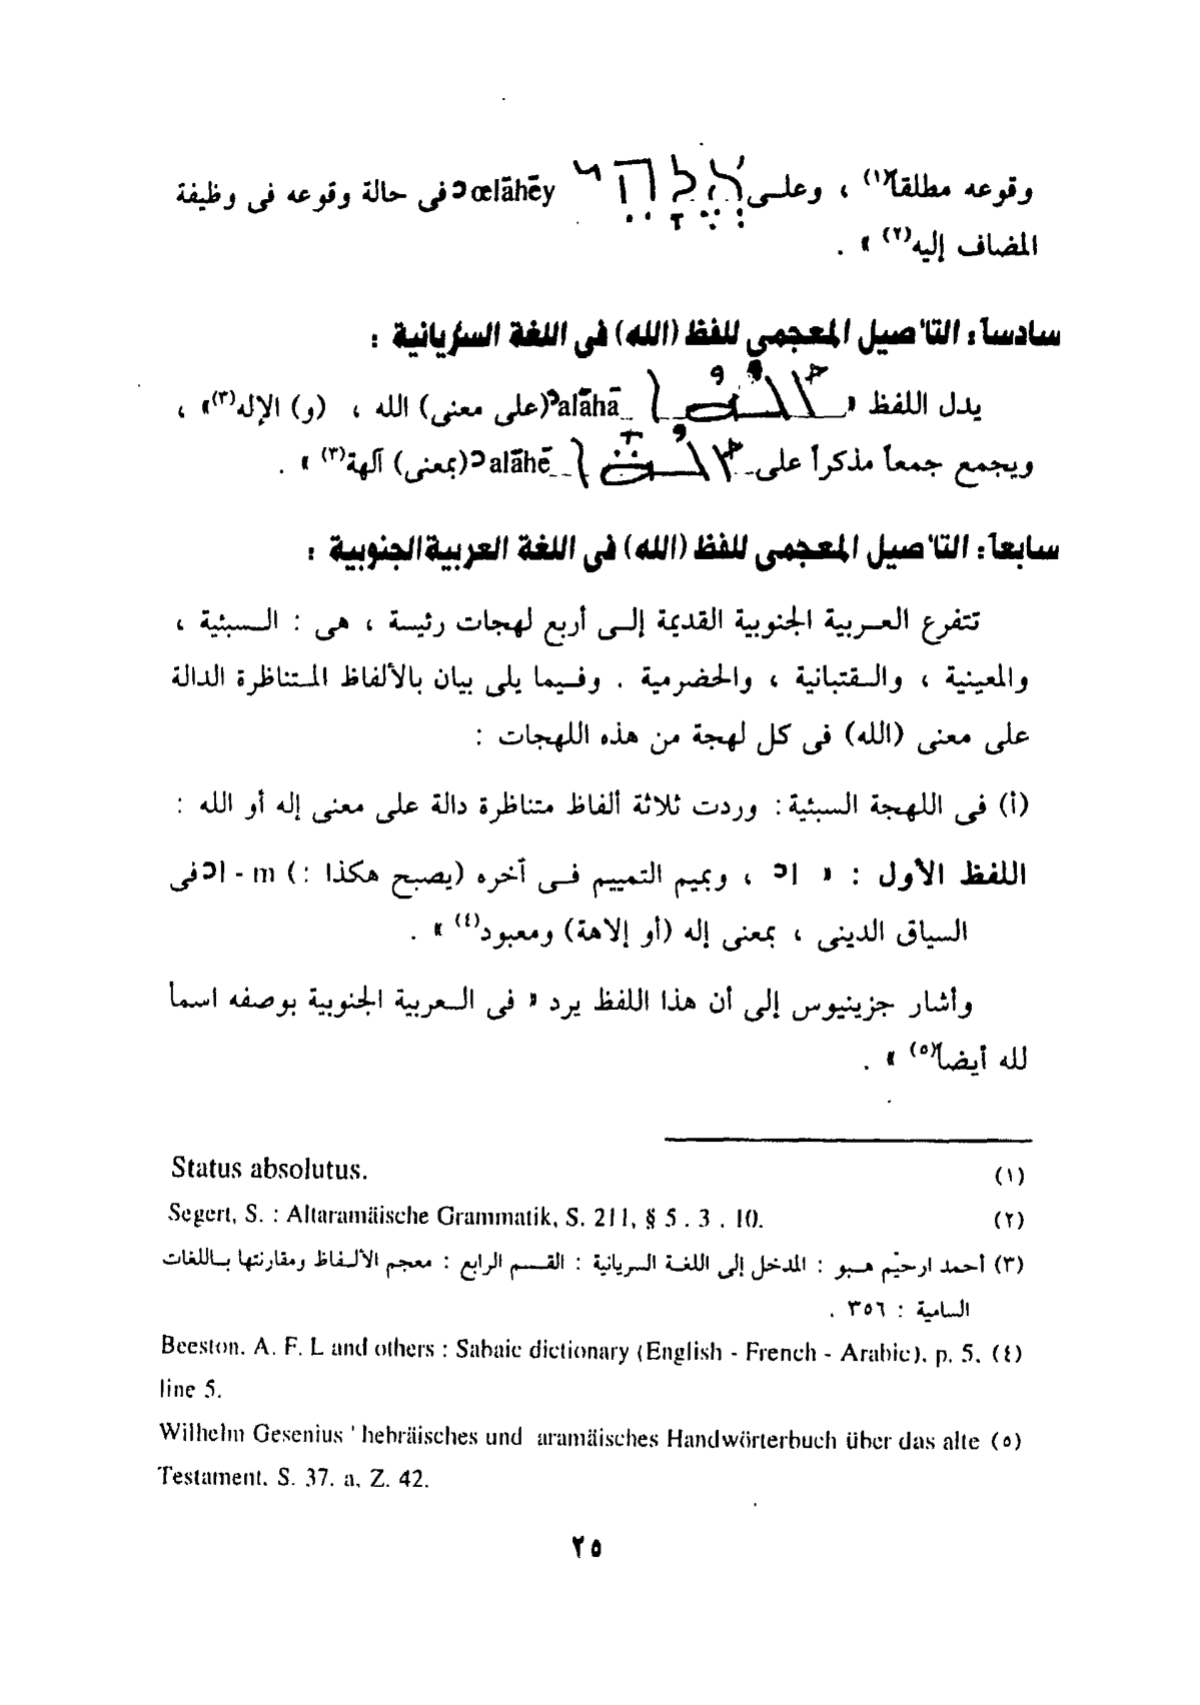 وقوعه مطلقاً(١) ، وعلـى אֱלָהֵי ɔœlāhēy فى حالة وقوعه فى وظيفة
المضاف إليه(٢) » .
سادساً: التأصيل المعجمى للفظ (الله) فى اللغة السريانية :
يدل اللفظ « ɔalāhā (على معنى) الله ، (و) الإله(٣)» ،
ويجمع جمعاً مذكراً على ɔalāhē (بمعنى) آلهة(٣) » .
سابعاً: التأصيل المعجمى للفظ (الله) فى اللغة العربية الجنوبية :
تتفرع العربية الجنوبية القديمة إلى أربع لهجات رئيسة ، هى : السبئية ،
والمعينية ، والقتبانية ، والحضرمية . وفيما يلى بيان بالألفاظ المتناظرة الدالة
على معنى (الله) فى كل لهجة من هذه اللهجات :
(أ) فى اللهجة السبئية : وردت ثلاثة ألفاظ متناظرة دالة على معنى إله أو الله :
اللفظ الأول : « ɔl ، وبميم التمييم فى آخره (يصبح هكذا : ) ɔl - m فى
السياق الدينى ، بمعنى إله (أو إلاهة) ومعبود(٤) » .
وأشار جزينيوس إلى أن هذا اللفظ يرد « فى العربية الجنوبية بوصفه اسماً
لله أيضاً(٥) » .
(١) Status absolutus.
(٢) Segert, S. : Altaramäische Grammatik, S. 211, § 5 . 3 . 10.
(٣) أحمد ارحيّم هبو : المدخل إلى اللغة السريانية : القسم الرابع : معجم الألفاظ ومقارنتها باللغات
السامية : ٣٥٦ .
(٤) Beeston. A. F. L and others : Sabaic dictionary (English - French - Arabic). p. 5.
line 5.
(٥) Wilhelm Gesenius ' hebräisches und aramäisches Handwörterbuch über das alte
Testament. S. 37. a, Z. 42.
٢٥